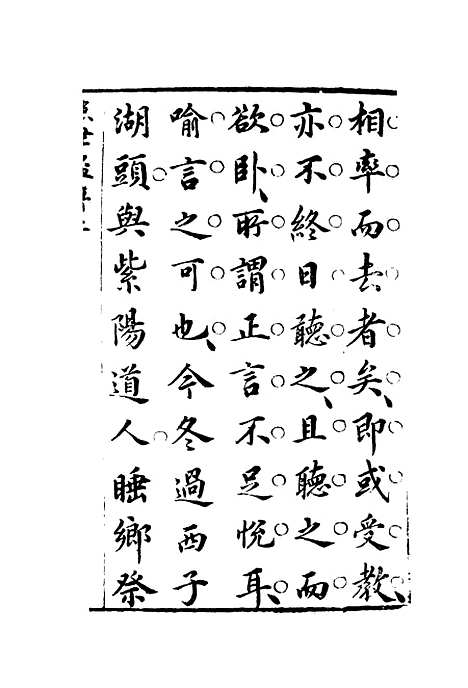 相率而去者矣即或受教
亦不終日聽之且聽之而
欲卧所謂正言不足悅耳
喻言之可也今冬過西子
湖頭與紫陽道人睡鄉祭